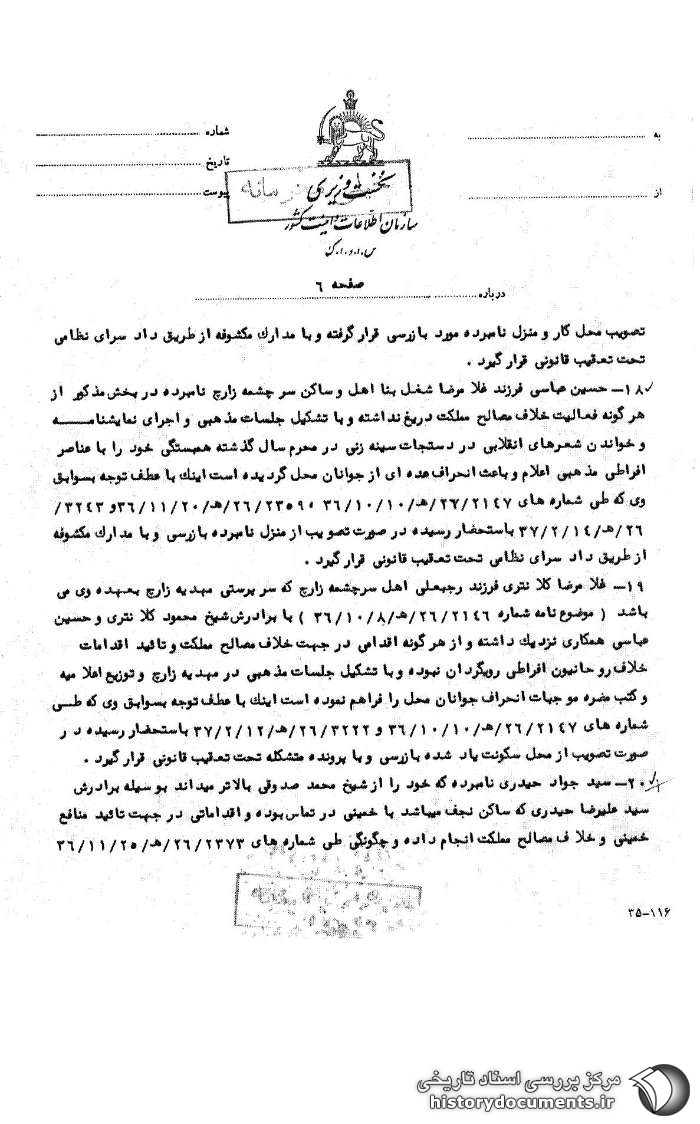 شماره
به
تاریخ
پیوست
از
نخست وزیری
سازمان اطلاعات و امنیت کشور
س.ا.و.ا.ک
صفحه ۶
درباره
تصویب محل کار و منزل نامبرده مورد بازرسی قرار گرفته و با مدارک مکشوفه از طریق داد سرای نظامی
تحت تعقیب قانونی قرار گیرد .
۱۸ــ حسین عباسی فرزند غلا مرضا شغل بنا اهل و ساکن سر چشمه زارچ نامبرده در بخش مذکور از
هر گونه فعالیت خلاف مصالح مملکت دریغ نداشته و با تشکیل جلسات مذهبی و اجرای نمایشنامه
و خواندن شعرهای انقلابی در دستجات سینه زنی در محرم سال گذشته همبستگی خود را با عناصر
افراطی مذهبی اعلام و باعث انحراف عده ای از جوانان محل گردیده است اینک با عطف توجه بسوابق
وی که طی شماره های ۲۶/۲۱۴۷/هـ/۳۶/۱۰/۱۰ و ۲۶/۲۳۵۹/هـ/۳۶/۱۱/۲۰ و ۳۲۴۳/
۲۶/هـ/۳۷/۲/۱۴ باستحضار رسیده در صورت تصویب از منزل نامبرده بازرسی و با مدارک مکشوفه
از طریق داد سرای نظامی تحت تعقیب قانونی قرار گیرد .
۱۹ــ غلا مرضا کلا نتری فرزند رجبعلی اهل سرچشمه زارچ که سر پرستی مهدیه زارچ بعهده وی می
باشد ( موضوع نامه شماره ۲۶/۲۱۴۶/هـ/۳۶/۱۰/۸ ) با برادرش شیخ محمود کلا نتری و حسین
عباسی همکاری نزدیک داشته و از هر گونه اقدامی در جهت خلاف مصالح مملکت و تائید اقدامات
خلاف روحانیون افراطی رویگردان نبوده و با تشکیل جلسات مذهبی در مهدیه زارچ و توزیع اعلا میه
و کتب مضره موجبات انحراف جوانان محل را فراهم نموده است اینک با عطف توجه بسوابق وی که طی
شماره های ۲۶/۲۱۴۷/هـ/۳۶/۱۰/۱۰ و ۲۶/۳۲۲۲/هـ/۳۷/۲/۱۲ باستحضار رسیده در
صورت تصویب از محل سکونت یاد شده بازرسی و با پرونده متشکله تحت تعقیب قانونی قرار گیرد .
۲۰ــ سید جواد حیدری نامبرده که خود را از شیخ محمد صدوقی بالاتر میداند بوسیله برادرش
سید علیرضا حیدری که ساکن نجف میباشد با خمینی در تماس بوده و اقداماتی در جهت تائید منافع
خمینی و خلا ف مصالح مملکت انجام داده و چگونگی طی شماره های ۲۶/۲۳۷۳/هـ/۳۶/۱۱/۲۵
۳۵-۱۱۶
مرکز بررسی اسناد تاریخی
historydocuments.ir